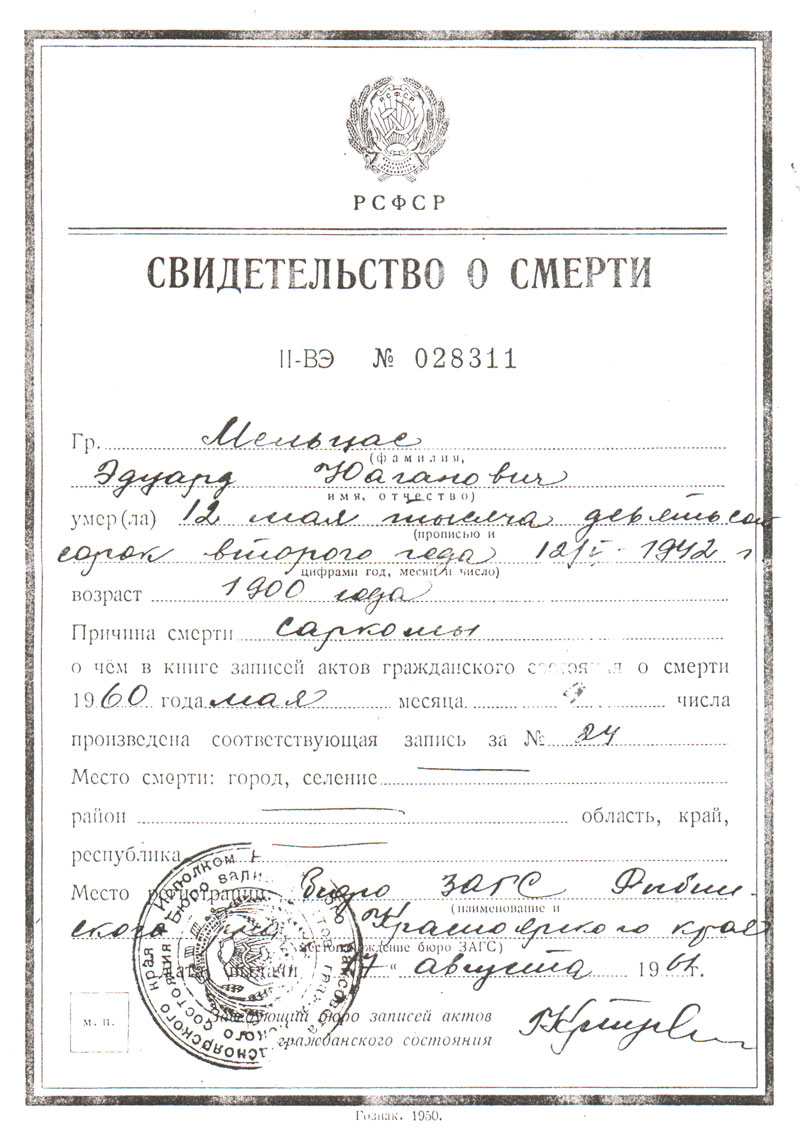 РСФСР
РСФСР
СВИДЕТЕЛЬСТВО О СМЕРТИ
II-ВЭ № 028311
Гр. Мельцас
(фамилия,
Эдуард Юаганович
имя, отчество)
умер(ла) 12 мая тысяча девятьсот
(прописью и
сорок второго года 12/V-1942 г
цифрами год, месяц и число)
возраст 1900 года
Причина смерти саркомы
о чём в книге записей актов гражданского состояния о смерти
1960 года мая месяца числа
произведена соответствующая запись за № 24
Место смерти: город, селение
район область, край,
республика
Место регистрации Бюро ЗАГС Рыбин-
(наименование и
ского Красноярского края
местонахождение бюро ЗАГС)
Дата выдачи 17 " августа 1961 г.
М. П.
Заведующий бюро записей актов
гражданского состояния
Гознак. 1950.